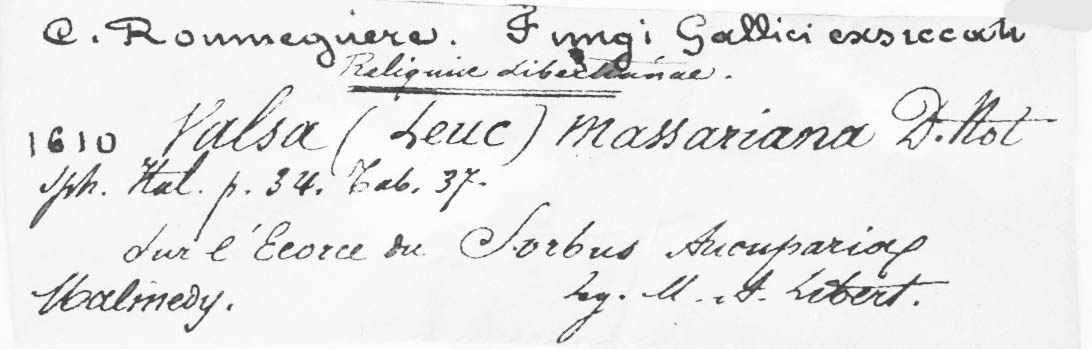 C. Roumeguère. Fungi Gallici exsiccati
Reliquiae Libertianae.
1610 Valsa (Leuc) Massariana D. Not
Sph. Ital. p. 34. Tab. 37.
Sur l'Ecorce du Sorbus Aucupariae
Malmedy. Leg. M. A. Libert.